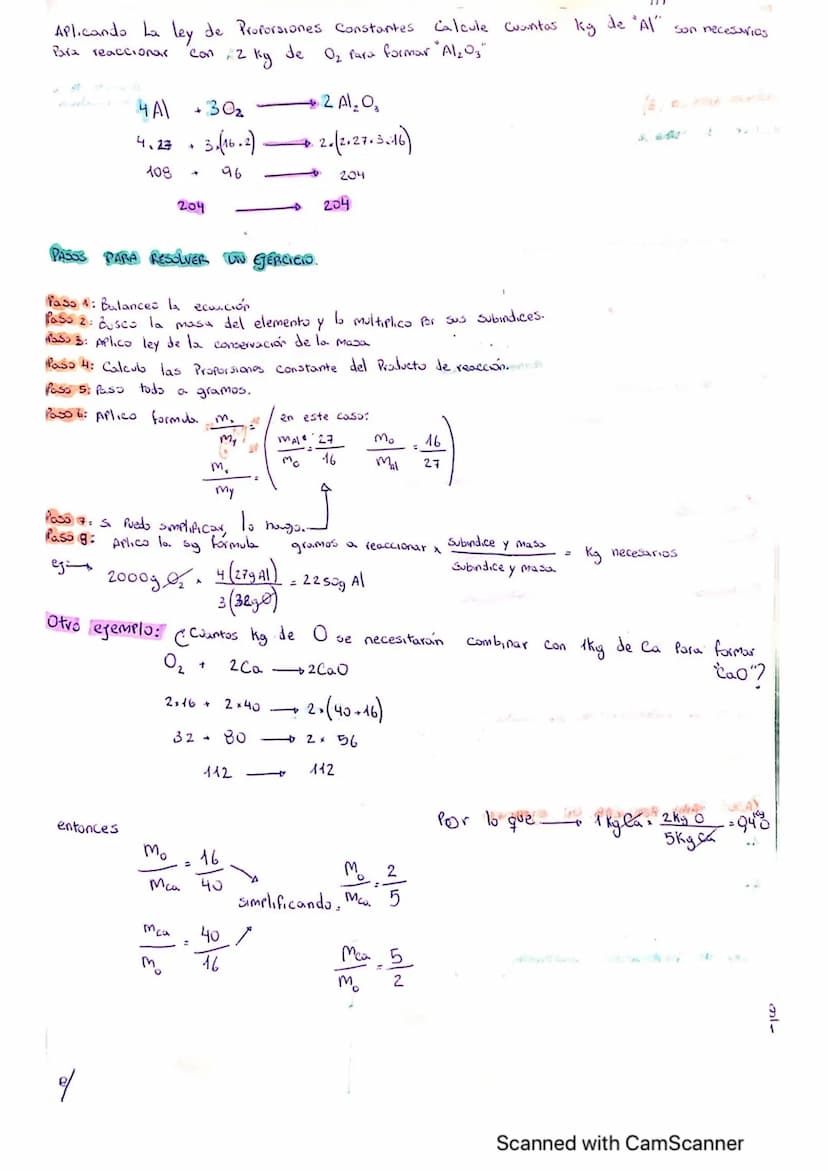 Aplicando la ley de Proporsiones Constantes Calcule cuantos kg de "Al" son necesarios
Para reaccionar con 2 kg de O₂ Para formar "Al₂O₃"
4Al + 3O₂ → 2Al₂O₃
4.27 + 3.(16.2) → 2.(2.27.3.16)
108 + 96 → 204
204 → 204
PASOS PARA RESOLVER UN EJERCICIO.
Paso 1: Balanceo la ecuación
Paso 2: Busco la masa del elemento y lo multiplico por sus subíndices.
Paso 3: Aplico ley de la conservación de la masa
Paso 4: Calculo las Proporsiones constante del Producto de reacción.
Paso 5: Paso todo a gramos.
Paso 6: Aplico formula m₁/my = ( en este caso: mAl/mO = 27/16 mO/mAl = 16/27 )
m₁/my =
Paso 7: Si Puedo simplificar, lo hago.
Paso 8: Aplico la sg fórmula gramos a reaccionar x subíndice y masa/subíndice y masa = Kg necesarios
ej: → 2000g O₂ x 4(27g Al)/3(32gO) = 2250g Al
Otro ejemplo: ¿Cuántos kg de O se necesitarán combinar con 1kg de Ca Para formar
"CaO"?
O₂ + 2Ca → 2CaO
2x16 + 2x40 → 2x(40+16)
32 + 80 → 2x 56
112 → 112
Por lo que → 1kgCa x 2kg O/5kg Ca = 0,4kg O
entonces
mO/mCa = 16/40
simplificando, mO/mCa = 2/5
mCa/mO = 40/16
mCa/mO = 5/2
e/
Scanned with CamScanner